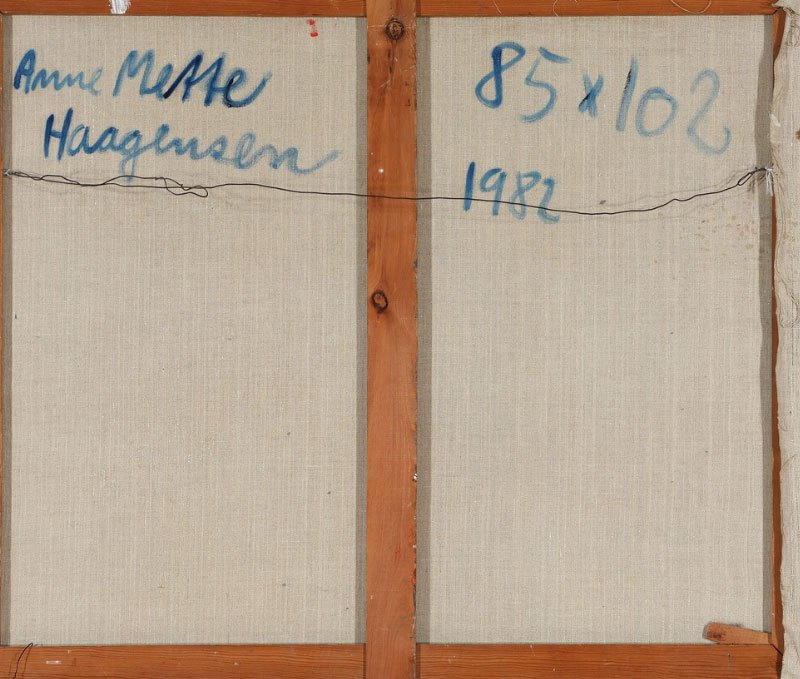 Anne Mette
Haagensen
85x102
1982